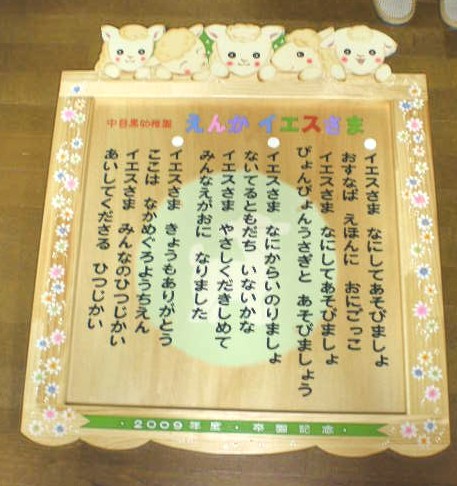 中目黒幼稚園 えんか イエスさま
イエスさま なにしてあそびましょ
おすなば えほんに おにごっこ
イエスさま なにしてあそびましょ
ぴょんぴょんうさぎと あそびましょう
イエスさま なにからいのりましょ
ないてるともだち いないかな
イエスさま やさしくだきしめて
みんなえがおに なりました
イエスさま きょうもありがとう
ここは なかめぐろようちえん
イエスさま みんなのひつじかい
あいしてくださる ひつじかい
・2009年度・卒園記念・